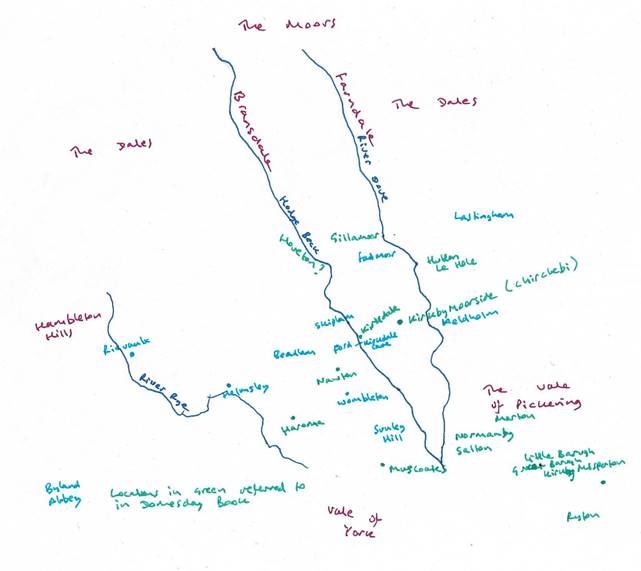 The Moors
Bransdale
Farndale
River Dove
The Dales
The Dales
Hodge Beck
Lastingham
Gillamoor
Fadmoor
Hoveton?
Hutton
Le Hole
Hambleton
Hills
Rievaulx
River Rye
Helmsley
Skiplam
Kirkdale
Kirkby Moorside (Chirchebi)
Keldholm
Beadlam
Ford
Kirkdale
Cave
Nawton
Wombleton
Harome
The Vale
of Pickering
Marton
Sunley
Hill
Normanby
Salton
Little Barugh
Great Barugh
Kirkby Misperton
Muscoates
Byland
Abbey
Locations in Green referred to
in Domesday Book
Vale of
York
Ryton